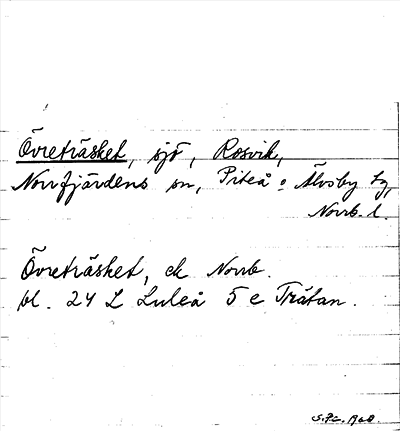 Övreträsket, sjö, Rosvik,
Norrfjärdens sn, Piteå o Älvsby tg,
Norrb. l.
Övreträsket, ek Norrb.
bl. 24 L Luleå 5 e Träfan.
1968.